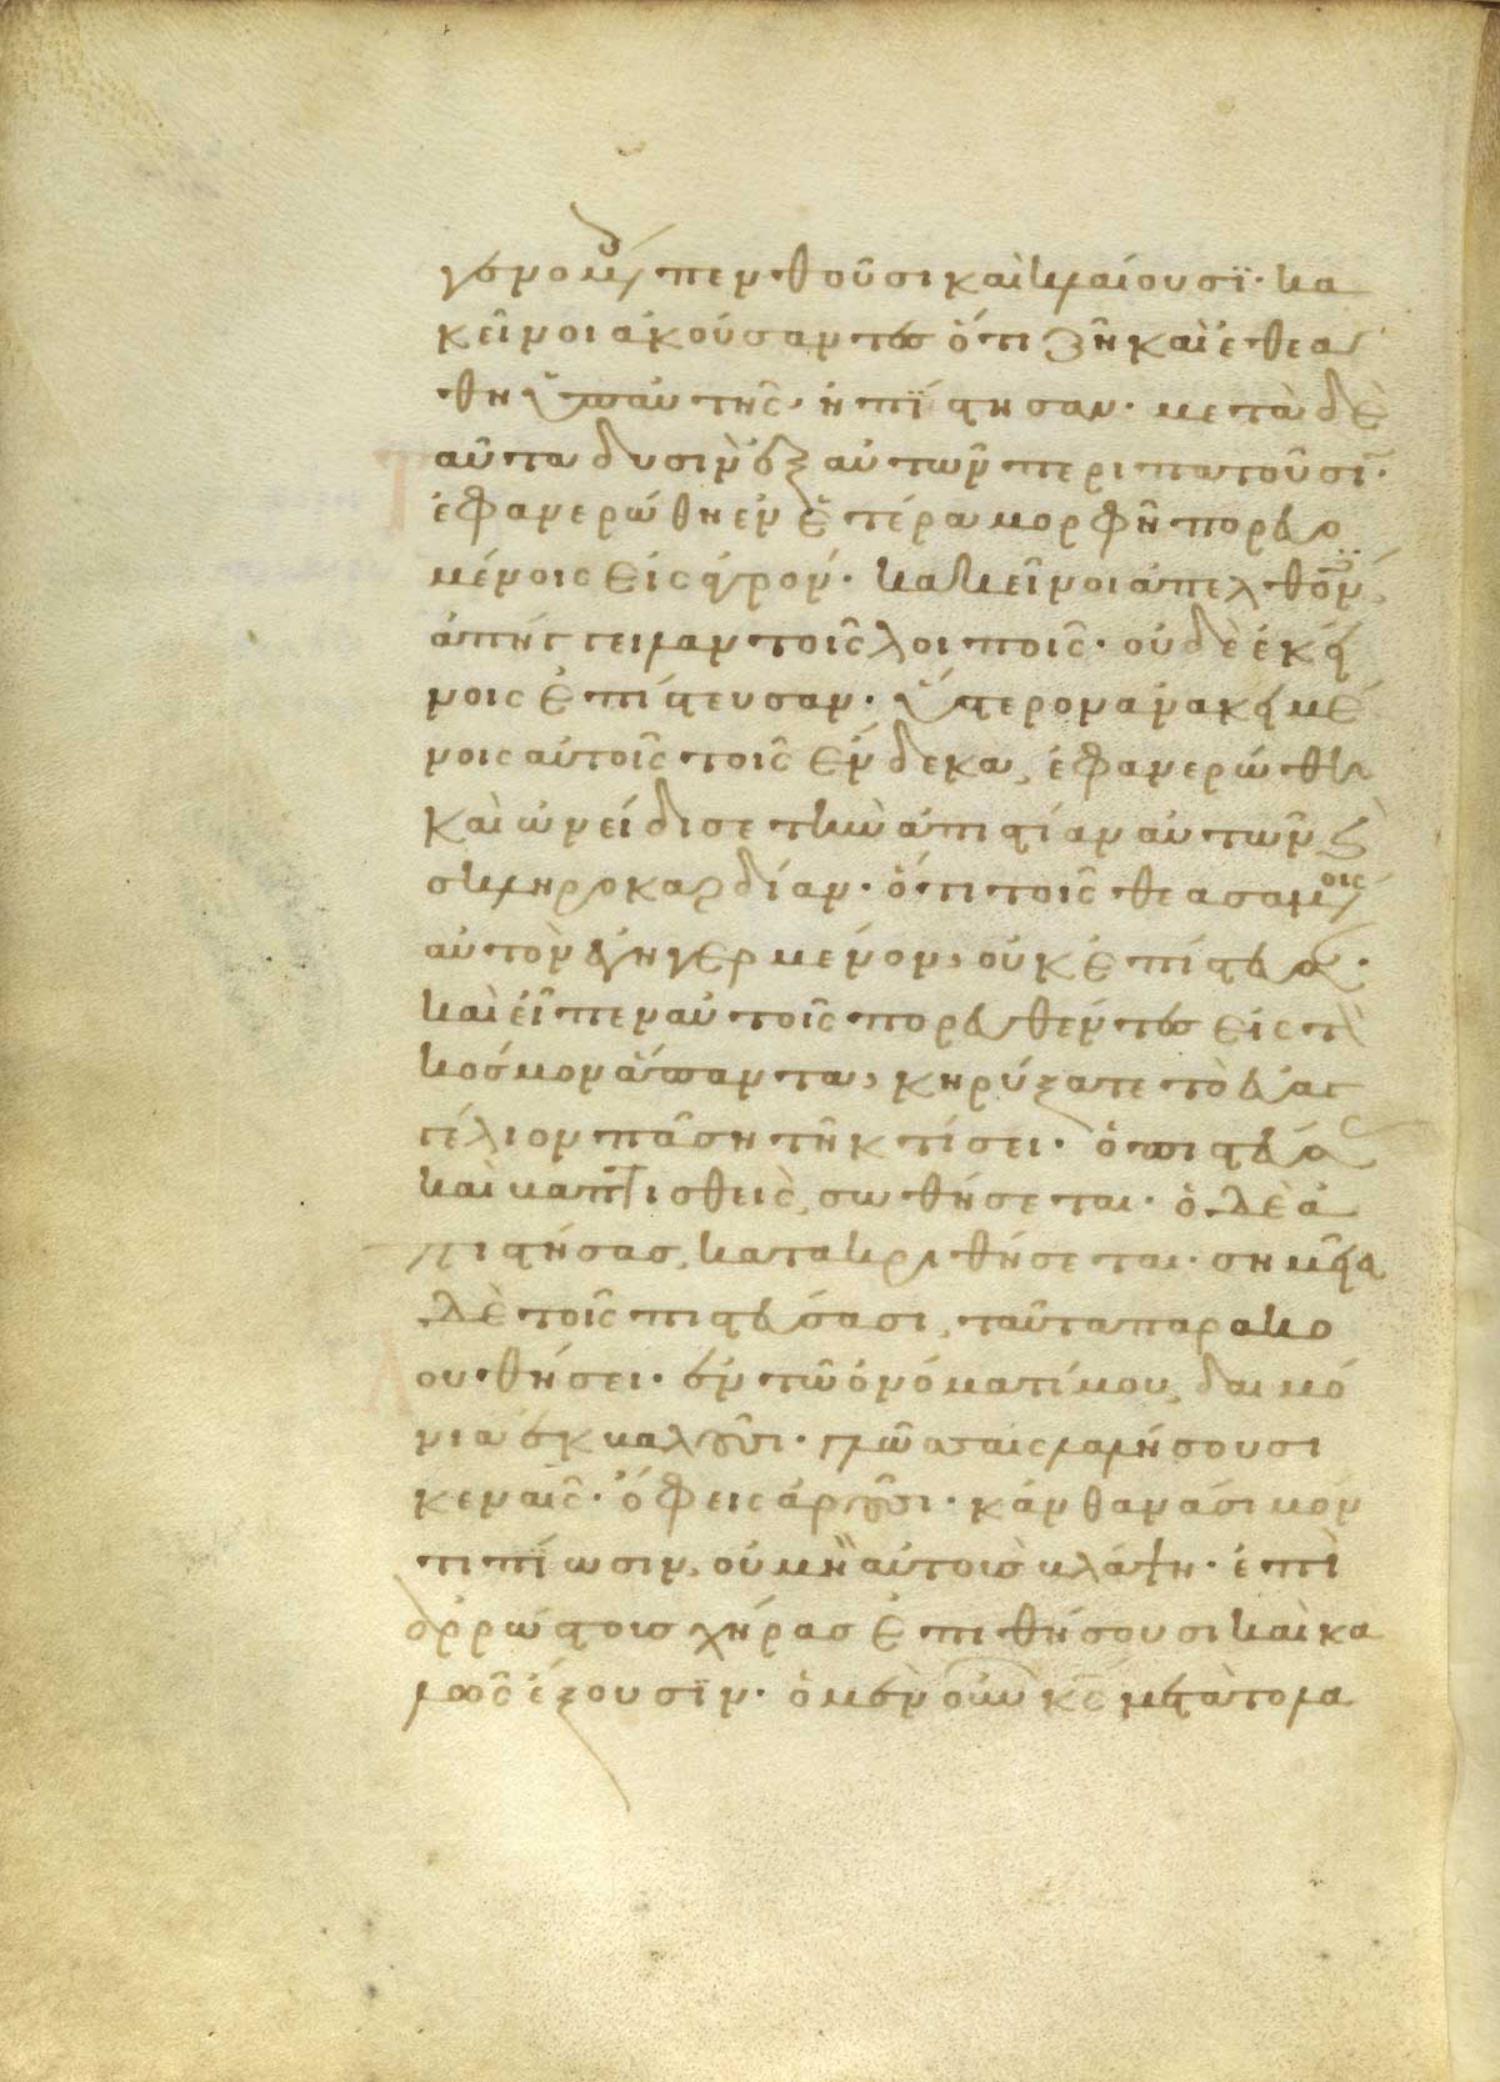 γενομ(εν)οις πενθοῦσι καὶ κλαίουσϊ· κα
κεῖνοι ἀκούσαντες ὅτι ζῆ καὶ ἐθεά
θη ὑπ' αὐτῆς· ἠπίστησαν· μετὰ δὲ
αῦτα δυσὶν ἐξ αὐτῶν περιπατοῦσι·
ἐφανερώθη ἐν ἑτέρα μορφῆ πορευο
μένοις εἰς ἀγρόν· κακεῖνοι ἀπελθόν
ἀπήγγειλαν τοῖς λοιποῖς· οὐδὲ ἐκεί
νοις ἐπίστευσαν· ὕστερον ἀνακειμέ
νοις αὐτοῖς τοῖς ἕνδεκα, ἐφανερώθη
καὶ ὠνείδισε τὴν ἀπιστίαν αὐτῶν κ(αὶ)
σκληροκαρδίαν· ὅτι τοῖς θεασαμ(έν)οις
αὐτὸν ἐγηγερμένον, οὐκ ἐπίστευσα(ν)·
καὶ εἶπεν αὐτοῖς πορευθέντες εἰς τὸ(ν)
κόσμον ἅπαντα, κηρύξατε τὸ εὐαγ
γέλιον πάση τῆ κτίσει· ὁ πιστεύσας
καὶ βαπτισθεὶς, σωθήσεται· ὁ δὲ ἀ
πιστήσας, κατακριθήσεται· σημεῖα
δὲ τοῖς πιστεύσασι, ταῦτα παρακο
ουθήσει· ἐν τῶ ὀνόματί μου, δαιμό
νια ἐκβαλοῦσι· γλώσσαις λαλήσουσι
κεναῖς· ὄφεις ἀροῦσι· κἂν θανάσιμόν
τι πίωσιν, οὐ μὴ αὐτοὺς βλάψη· ἐπὶ
ἀρρώστους χήρας ἐπιθήσουσι καὶ κα
λῶς ἕξουσϊν· ὁ μὲν οὖν κς μετὰ τὸ λα